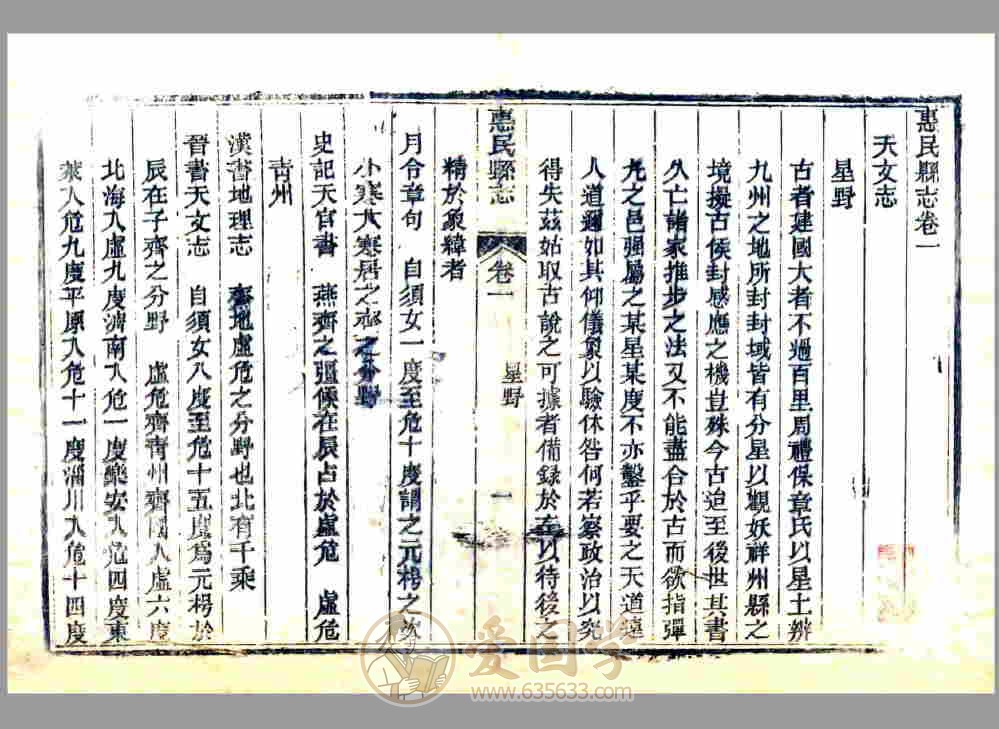 惠民縣志卷一
天文志
星野
古者建國大者不過百里周禮保章氏以星土辨
九州之地所封封域皆有分星以觀妖祥州縣之
境擬古侯封感應之機豈殊今古迨至後世其書
久亡諸家推步之法又不能盡合於古而欲指彈
九之邑强屬之某星某度不亦鑿乎要之天道遠
人道邇如其仰儀象以驗休咎何若察政治以究
得失茲姑取古說之可據者備録於左以待後之
惠民縣志 卷一 星野 一
精於象緯者
月令章句 自須女一度至危十度謂之元枵之次
小寒大寒居之齊之分野
史記天官書 燕齊之彊候在辰占於虛危 虛危
青州
漢書地理志 齊地虛危之分野也北有千乘
晉書天文志 自須女八度至危十五度爲元枵於
辰在子齊之分野 虛危齊青州齊國入虛六度
北海入虛九度濟南入危一度樂安入危四度東
萊入危九度平原入危十一度淄川入危十四度
爱国学
www.635633.com